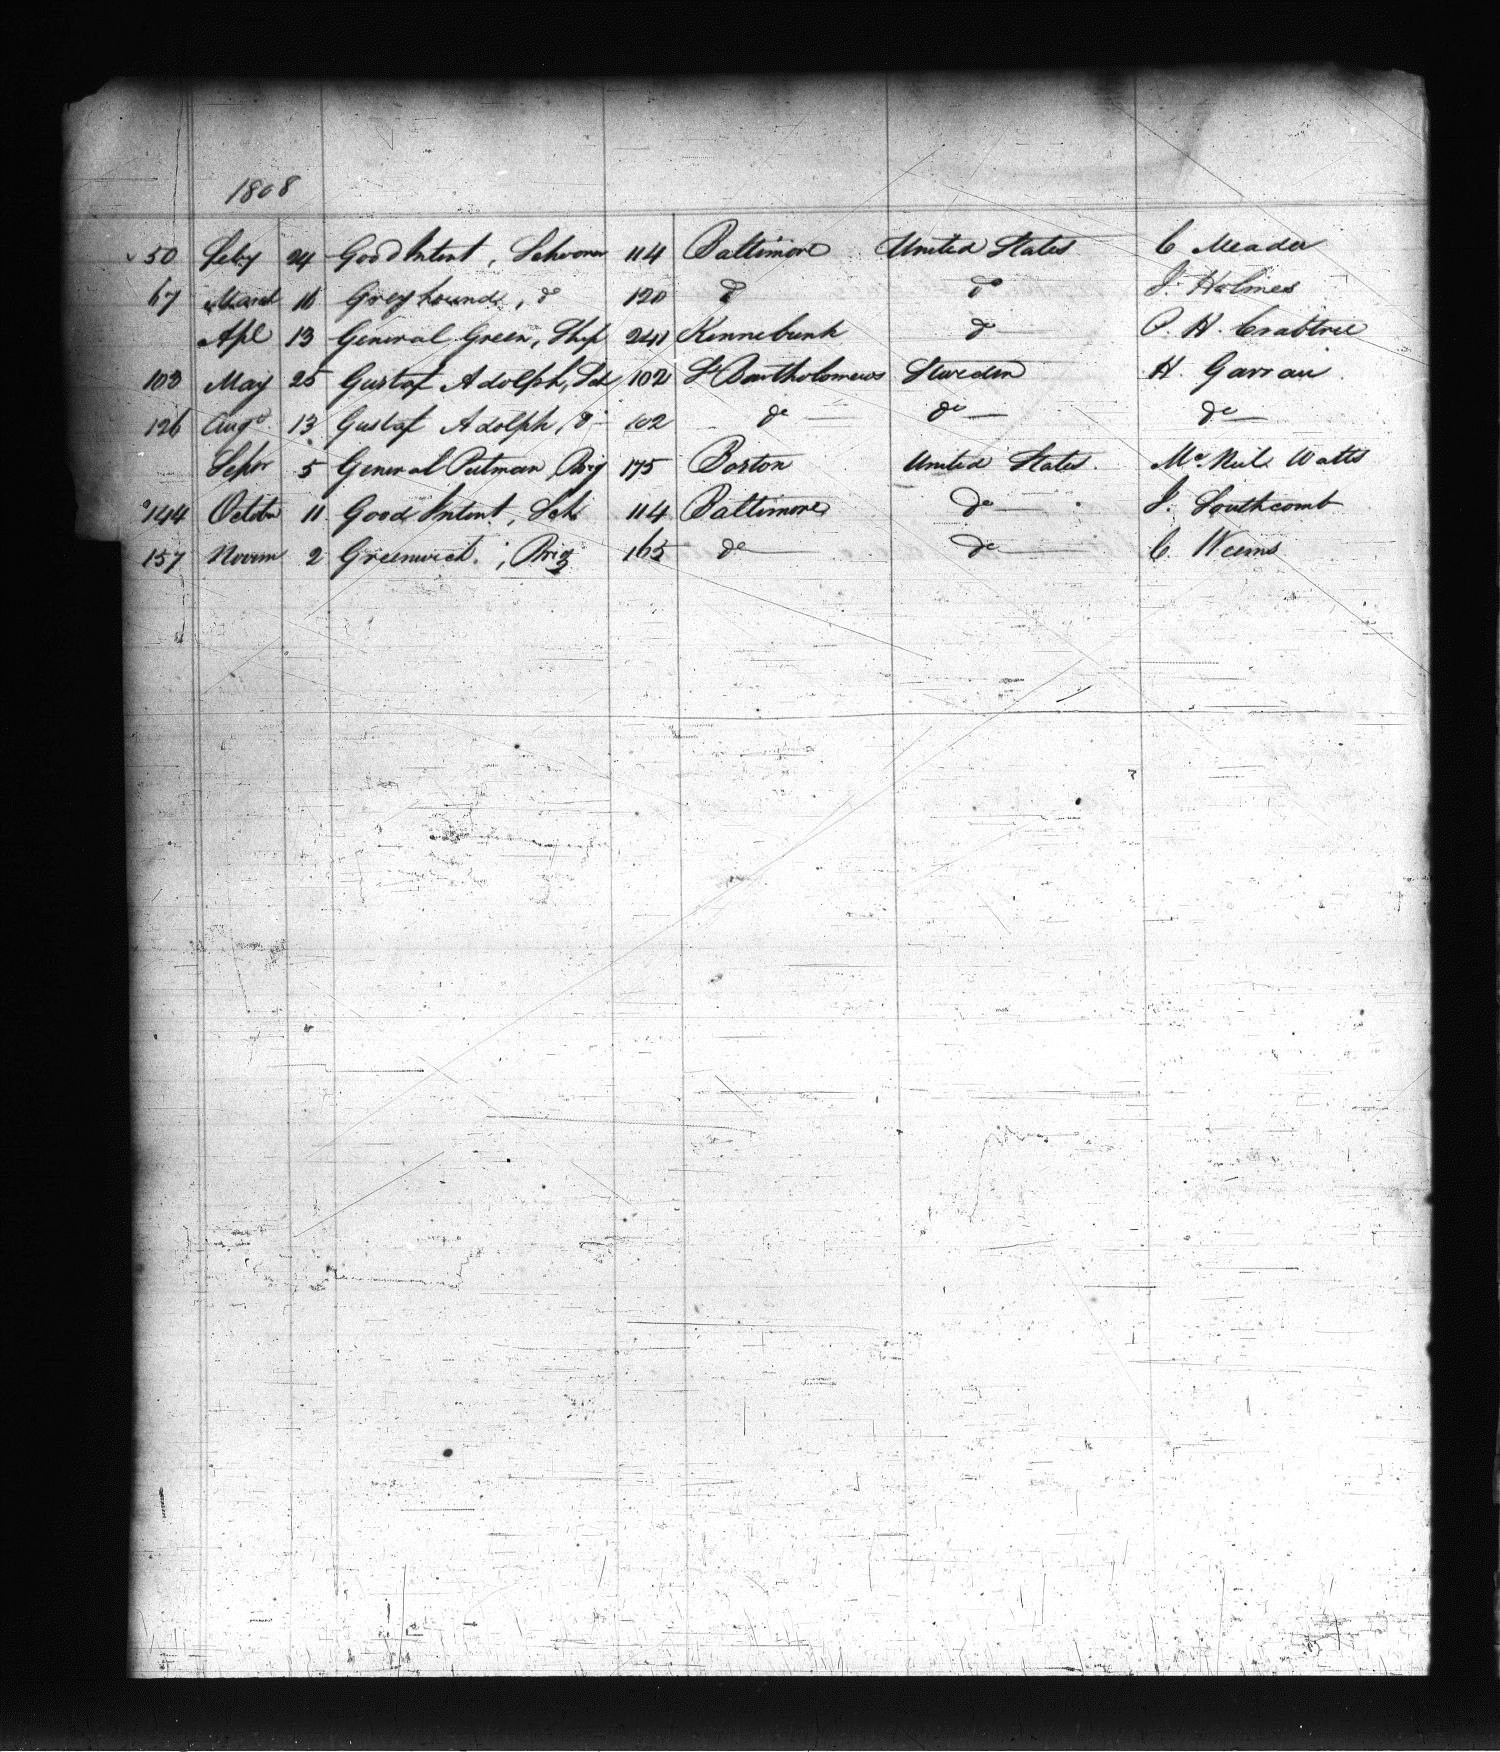 1808
50 Feby 24 Good Intent, Schooner 114 Baltimore United States C Meader
67 March 16 Greyhound, do 120 do do J. Holmes
Apl 13 General Green, Ship 240 Kennebunk do P. H. Crabtree
103 May 25 Gustaf Adolph, Sch 102 St Bartholomews Sweden H. Garrau
126 Augt 13 Gustaf Adolph, do 102 do do do
Sepr 5 General Putman Brig 175 Boston United States. Mc Neil Watts
144 Octobr 11 Good Intent, Sch 114 Baltimore do J. Southcomb
157 Novem 2 Greenwich, Brig 165 do do C Weems